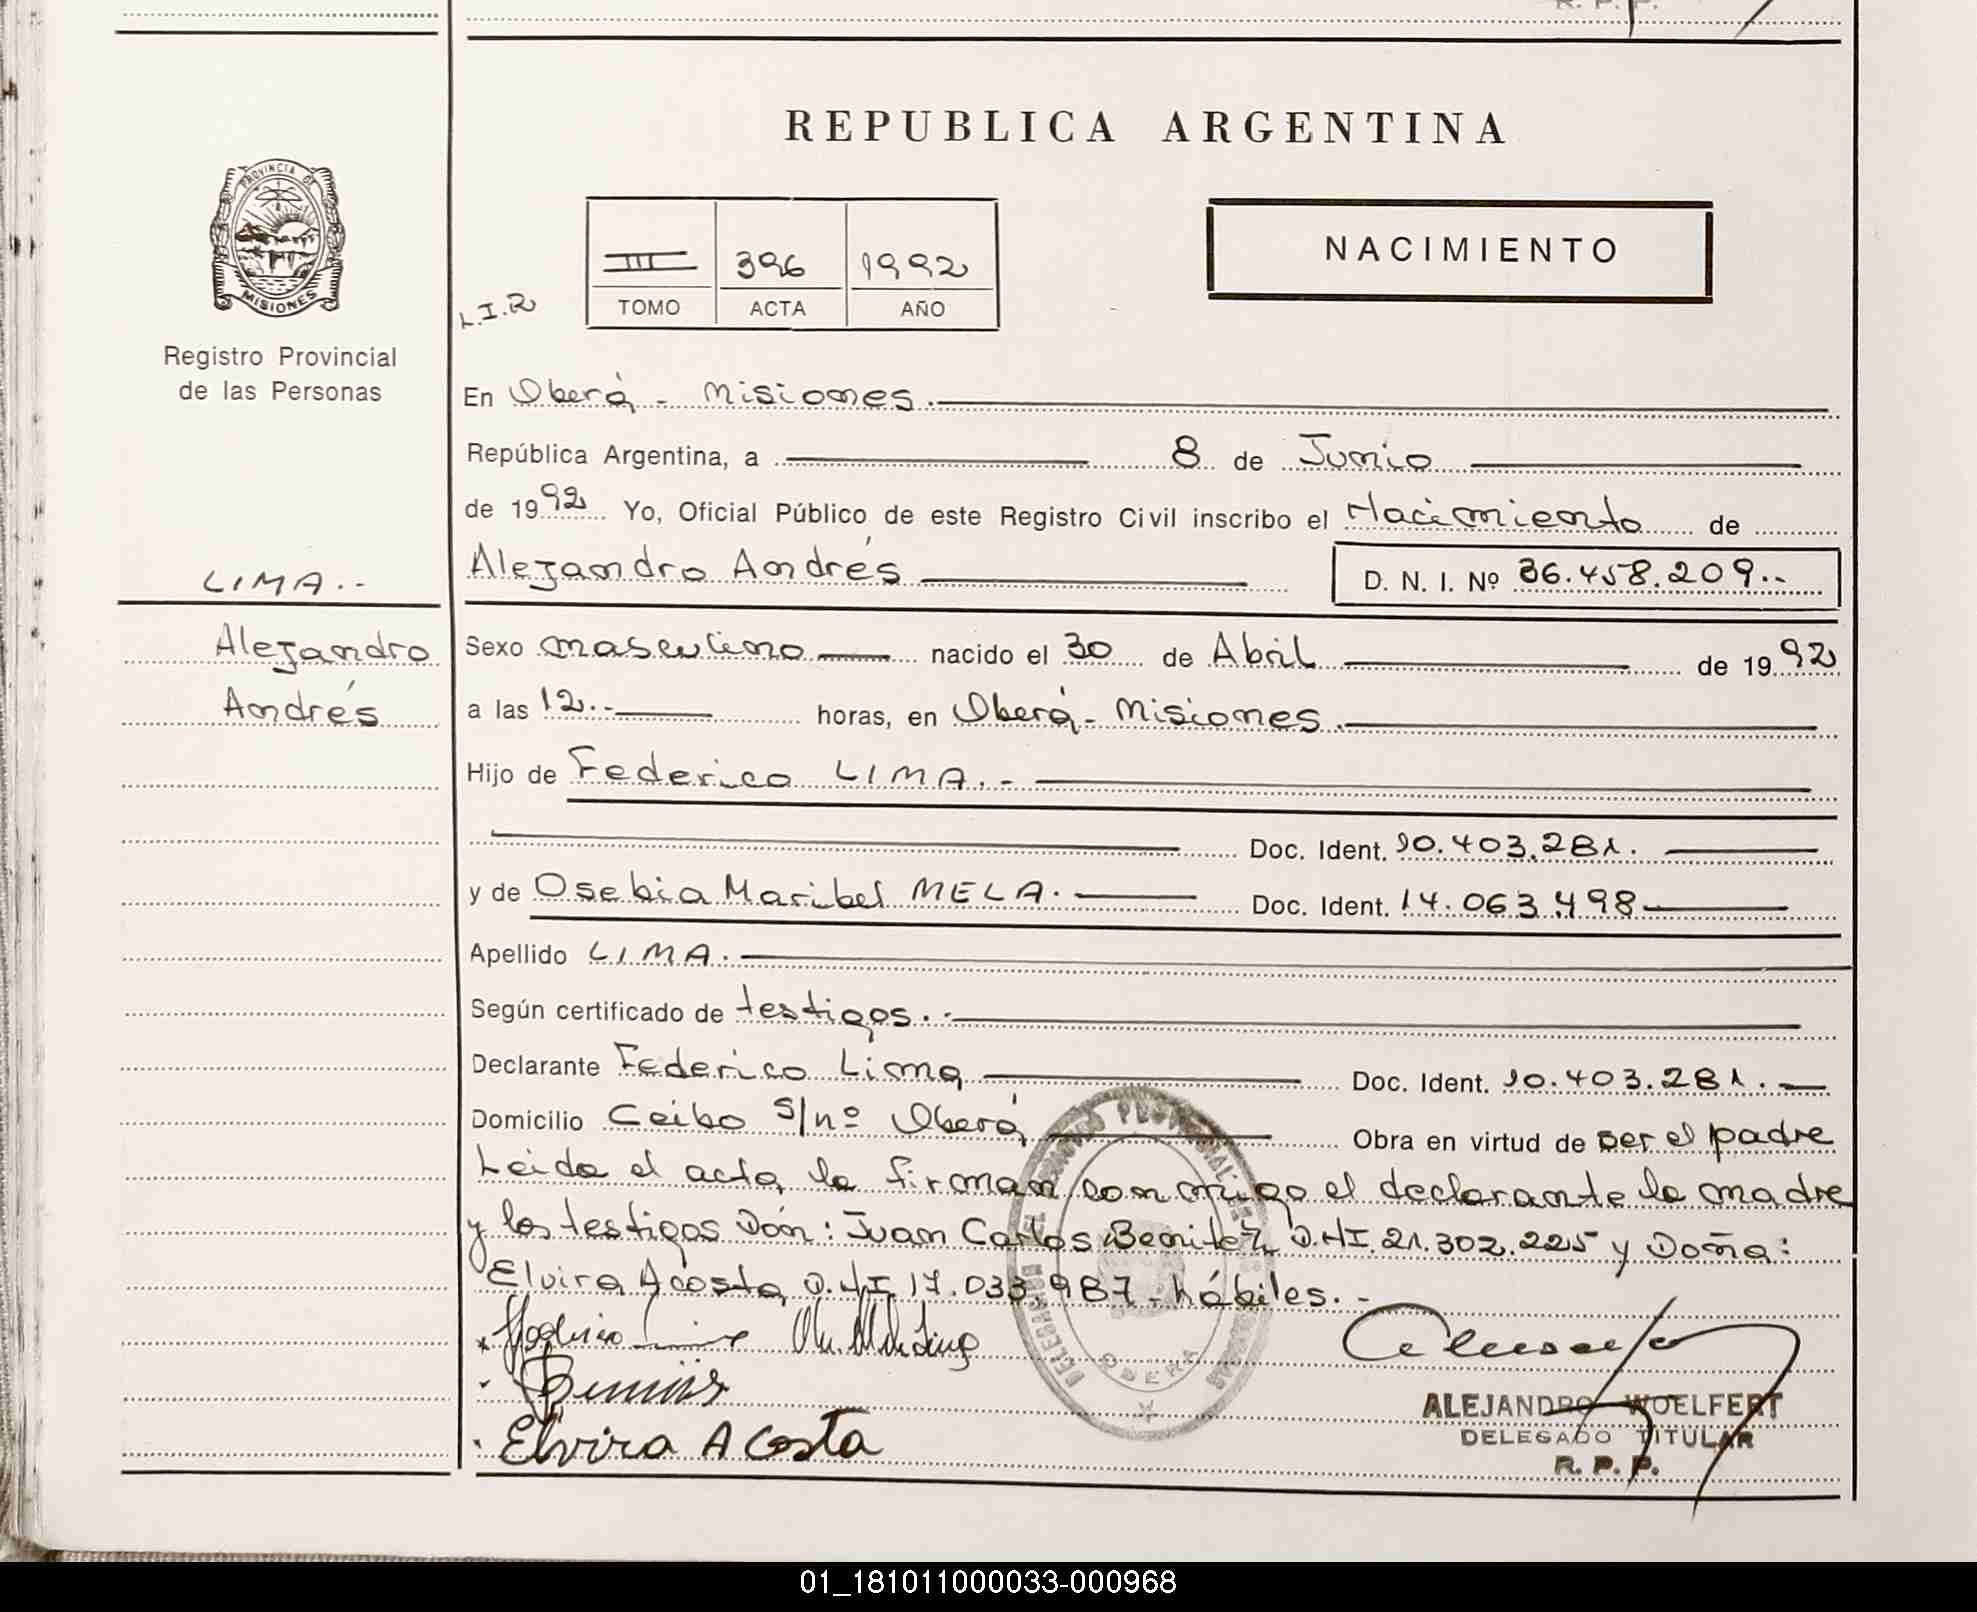 REPUBLICA ARGENTINA
PROVINCIA DE
MISIONES
Registro Provincial
de las Personas
L.I.R
III 396 1992
TOMO ACTA AÑO
NACIMIENTO
En Oberá - Misiones.
República Argentina, a 8 de Junio
de 1992 Yo, Oficial Público de este Registro Civil inscribo el Nacimiento de
Alejandro Andrés D. N. I. Nº 36.458.209..
LIMA.-
Alejandro
Andrés
Sexo masculino nacido el 30 de Abril de 1992
a las 12.- horas, en Oberá - Misiones.
Hijo de Federico LIMA.-
Doc. Ident. 10.403.281.
y de Osebia Maribel MELA. Doc. Ident. 14.063.498
Apellido LIMA.
Según certificado de testigos.-
Declarante Federico Lima Doc. Ident. 10.403.281.
Domicilio Ceibo S/nº Oberá Obra en virtud de ser el padre
Leida el acta, la firman conmigo el declarante la madre
y los testigos Don: Juan Carlos Benitez D.N.I. 21.302.225 y Doña:
Elvira Acosta D.N.I. 17.033.987 - hábiles.-
Elvira Acosta
OBERA
ALEJANDRO WOELFERT
DELEGADO TITULAR
R. P. P.
01_181011000033-000968